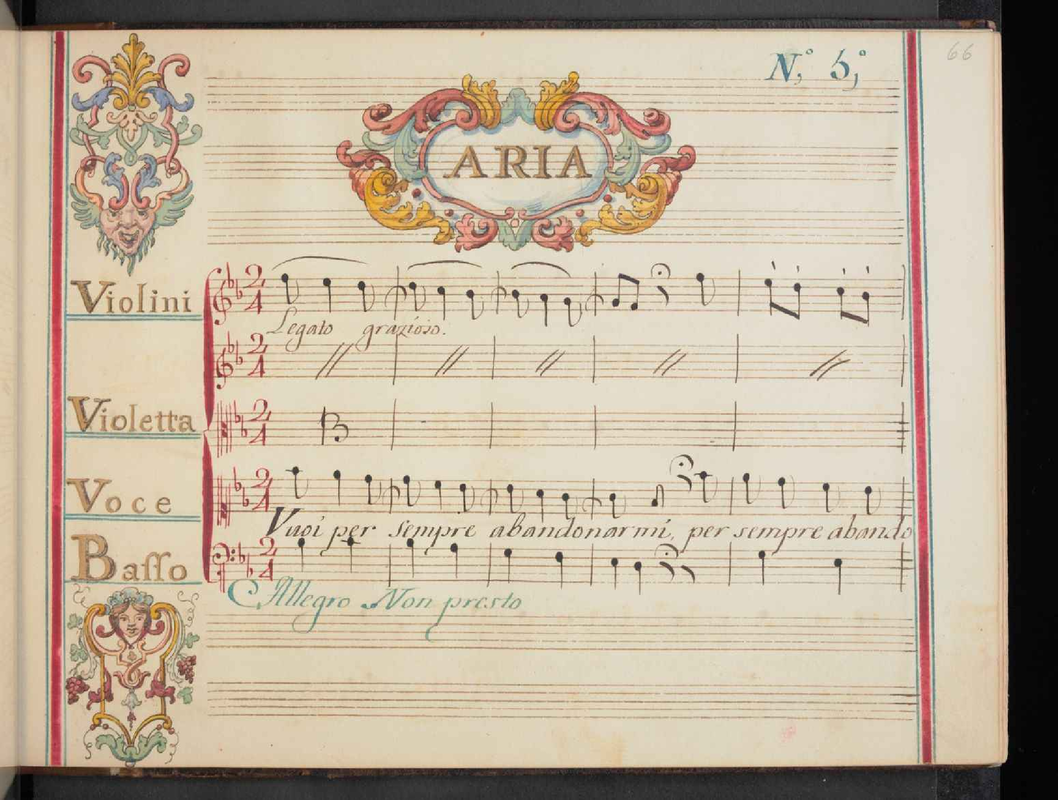 66
N.° 5,°
ARIA
Violini
2
4
Legato grazioso.
2
4
Violetta
2
4
B
Voce
2
4
Vuoi per sempre abandonarmi, per sempre abando
Basso
2
4
Allegro Non presto